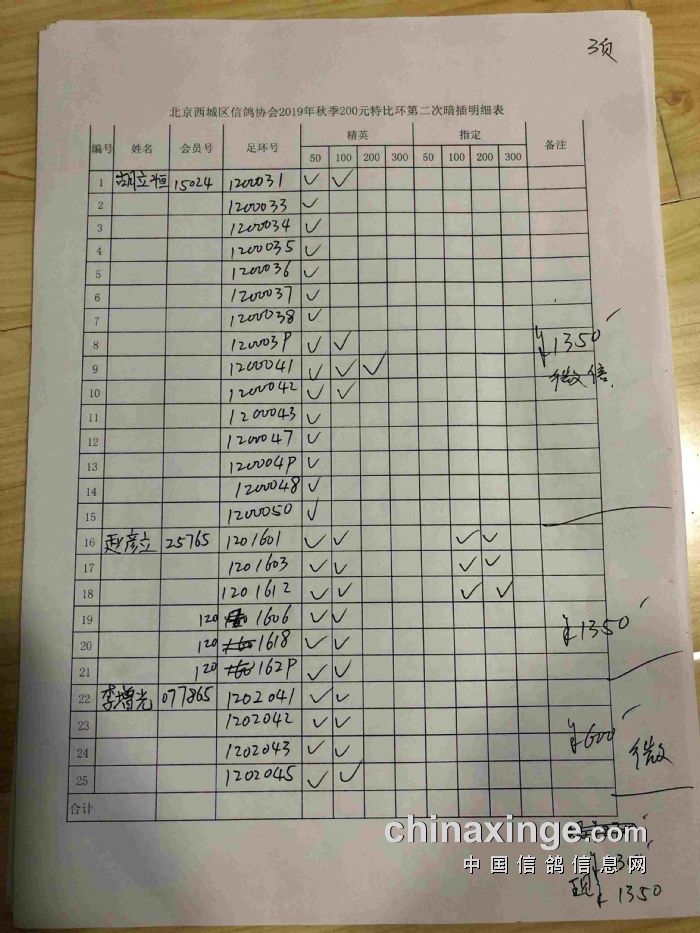 3页
北京西城区信鸽协会2019年秋季200元特比环第二次暗插明细表
编号 姓名 会员号 足环号 精英 指定 备注
50 100 200 300 50 100 200 300
1 胡立恒 15024 1200031 ✓ ✓
2 1200033 ✓
3 1200034 ✓
4 1200035 ✓
5 1200036 ✓
6 1200037 ✓
7 1200038 ✓
8 1200039 ✓ ✓ ¥1350
9 1200041 ✓ ✓ ✓ 微信
10 1200042 ✓ ✓
11 1200043 ✓
12 1200047 ✓
13 1200049 ✓
14 1200048 ✓
15 1200050 ✓
16 赵彦立 25765 1201601 ✓ ✓ ✓ ✓
17 1201603 ✓ ✓ ✓ ✓
18 1201612 ✓ ✓ ✓ ✓
19 120 1606 ✓ ✓ ¥1350
20 120 1618 ✓ ✓
21 120 1629 ✓ ✓
22 李增光 077865 1202041 ✓ ✓
23 1202042 ✓ ✓ ¥600
24 1202043 ✓ ✓ 微
25 1202045 ✓ ✓
合计
chinaxinge.com
中国信鸽信息网
现 ¥1350